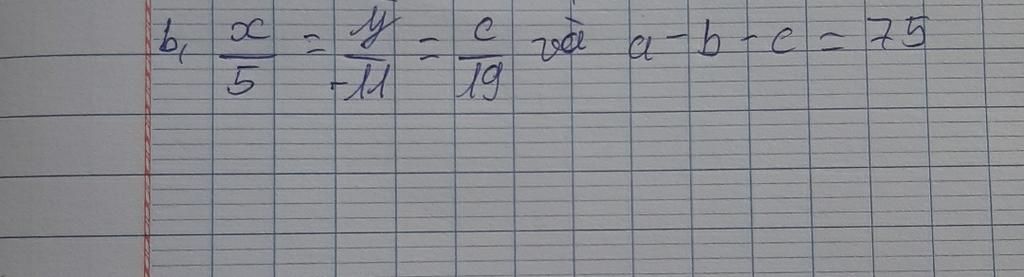 b, x/5 = y/-11 = c/19 và a - b - c = 75